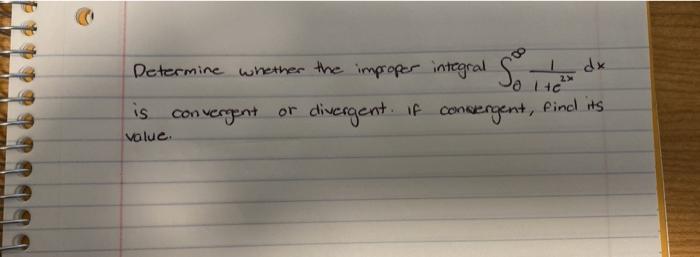 Determine whether the improper integral ∫₀^∞ 1/(1+e^(2x)) dx
is convergent or divergent. If convergent, find its
value.